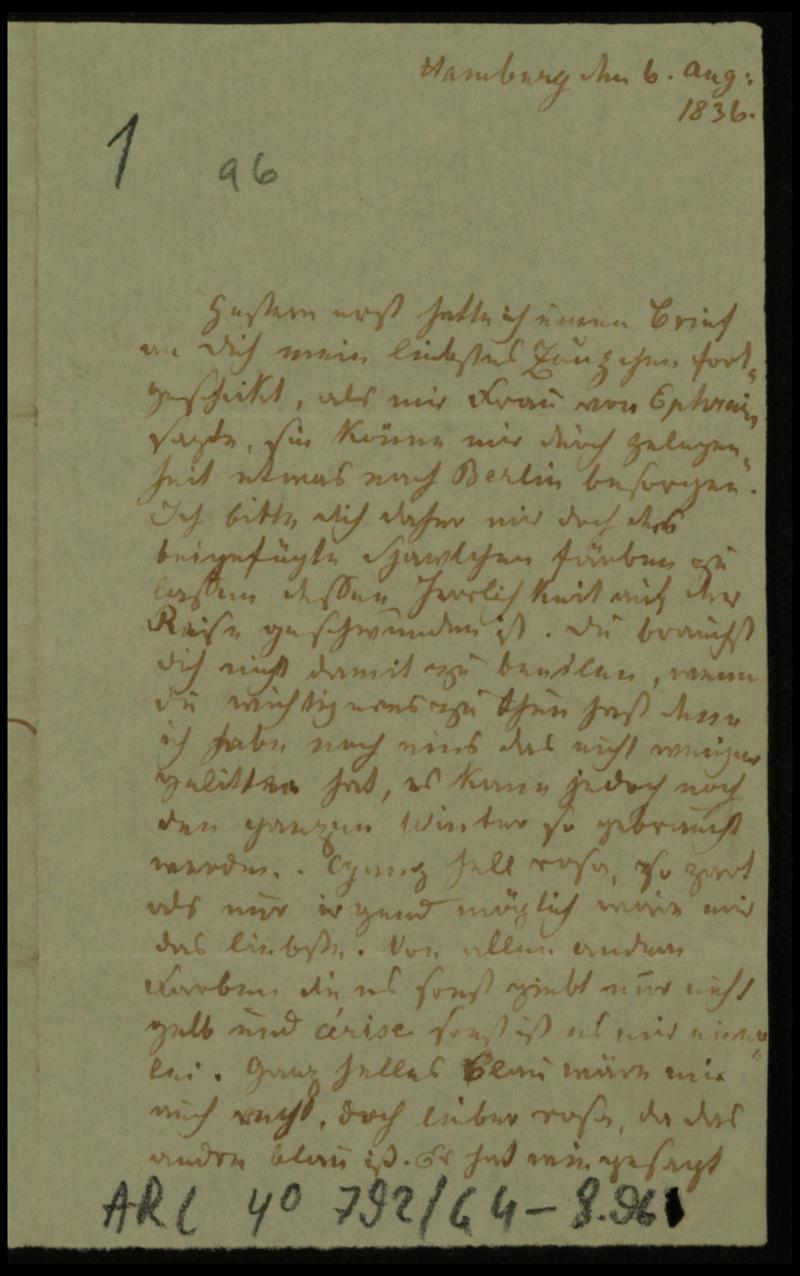 Hamburg den 6. Aug:
1836.
1
96
Gestern erst hatte ich einen Brief
an Dich mein liebstes Zunzchen fort-
geschikt, als mir Frau von Ephraim
sagte, sie könne mir durch gelegen-
heit etwas nach Berlin besorgen.
Ich bitte dich daher mir doch das
beigefügte Shawlchen färben zu
lassen dessen Herrlichkeit auf der
Reise geschwunden ist. Du brauchst
dich nicht damit zu beeilen, wenn
du wichtigeres zu thun hast denn
ich habe noch eins das nicht weniger
gelitten hat, es kann jedoch noch
den ganzen Winter so gebraucht
werden. Ganz hell rosa, so zart
als nur irgend möglich wäre mir
das liebste. Von allen andern
Farben die es sonst giebt nur nicht
gelb und cérise sonst ist es mir einer-
lei. Ganz helles Blau wäre mir
auch recht, doch lieber rosa, da das
andre blau ist. Er hat mir gesagt
ARC 4° 792/G4-8.96